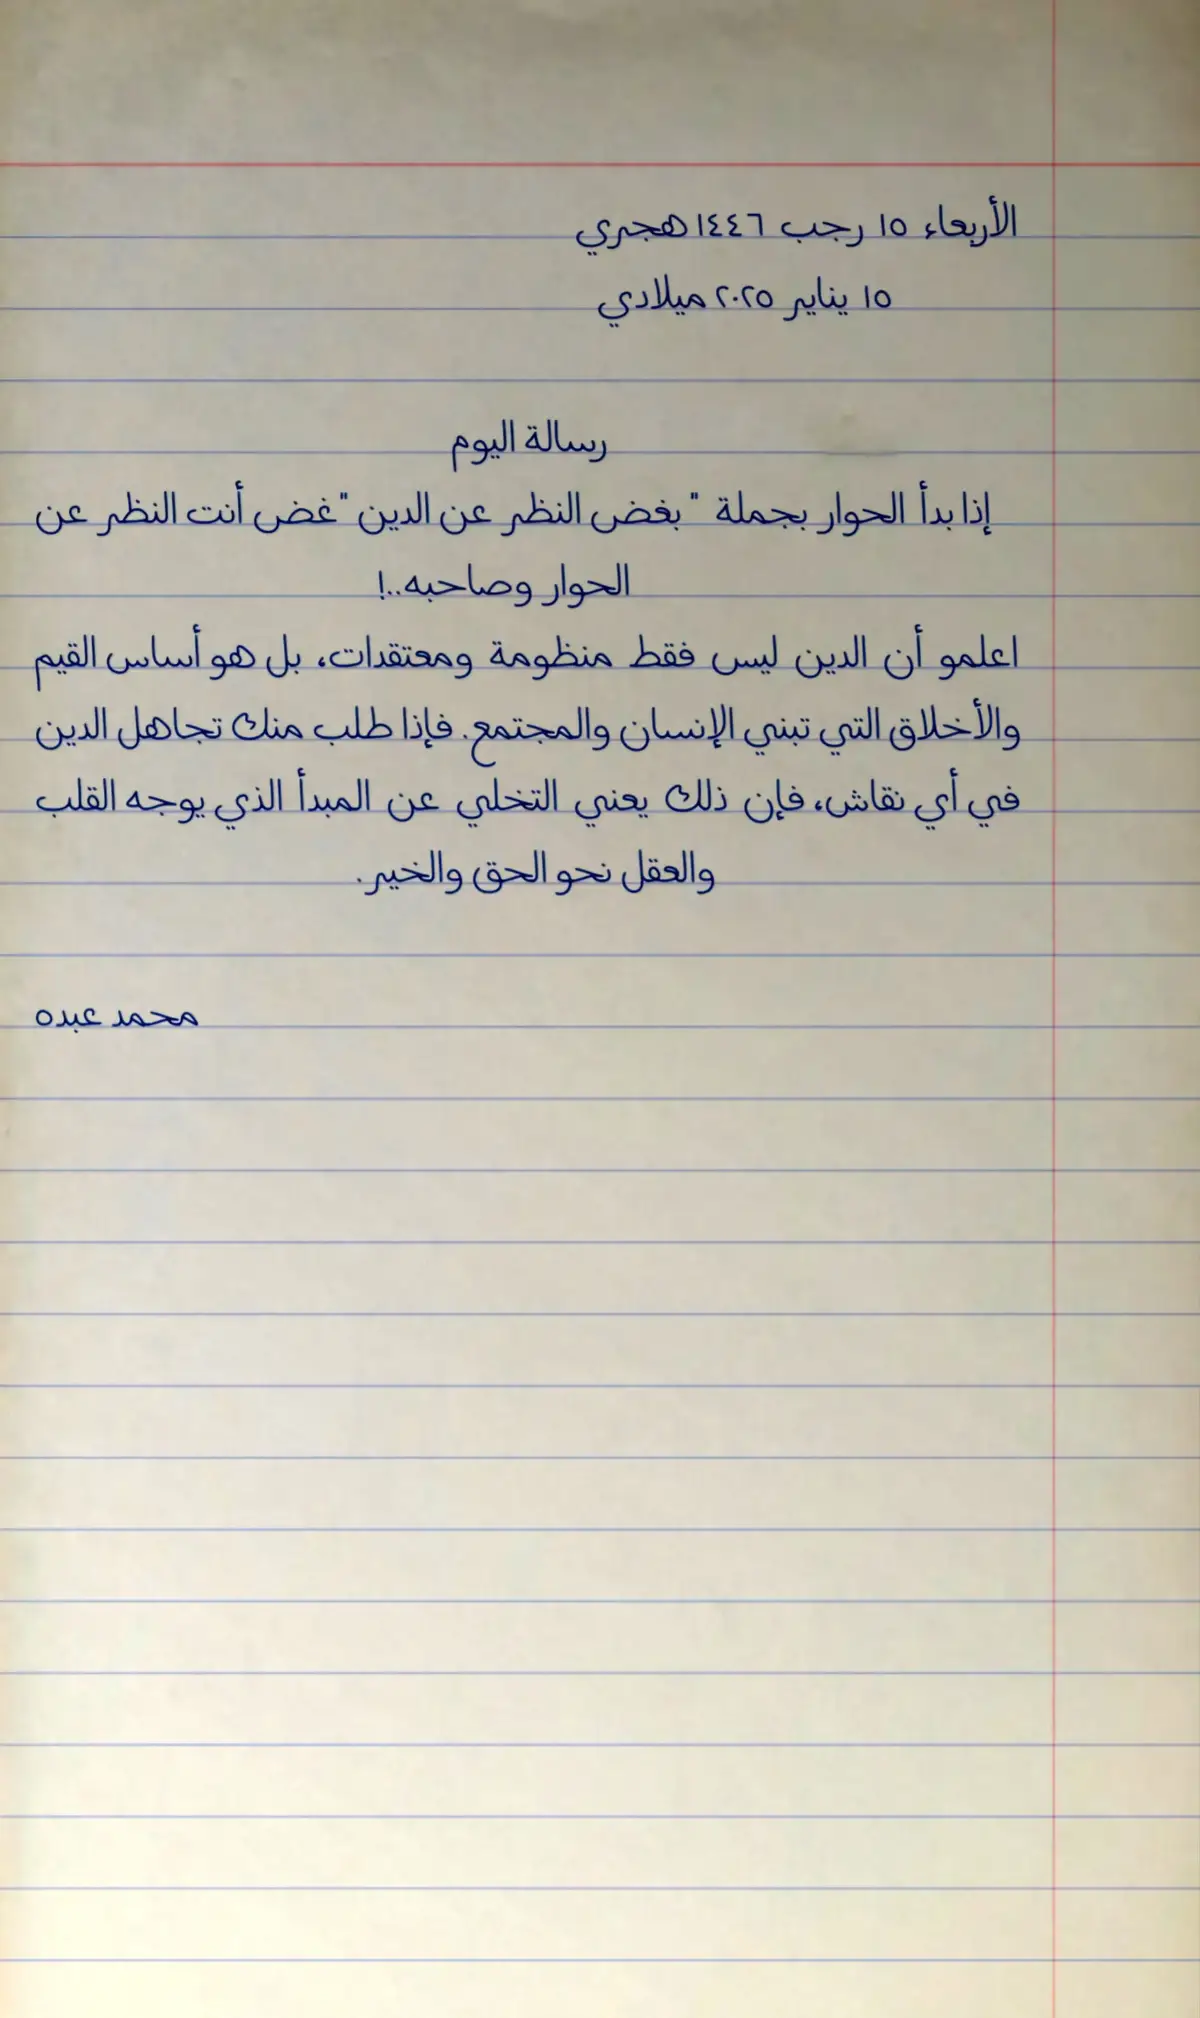 الأربعاء ١٥ رجب ١٤٤٦ هجري
١٥ يناير ٢٠٢٥ ميلادي
رسالة اليوم
إذا بدأ الحوار بجملة " بغض النظر عن الدين "غض أنت النظر عن
الحوار وصاحبه..!
اعلمو أن الدين ليس فقط منظومة ومعتقدات، بل هو أساس القيم
والأخلاق التي تبني الإنسان والمجتمع. فإذا طلب منك تجاهل الدين
في أي نقاش، فإن ذلك يعني التخلي عن المبدأ الذي يوجه القلب
والعقل نحو الحق والخير.
محمد عبده